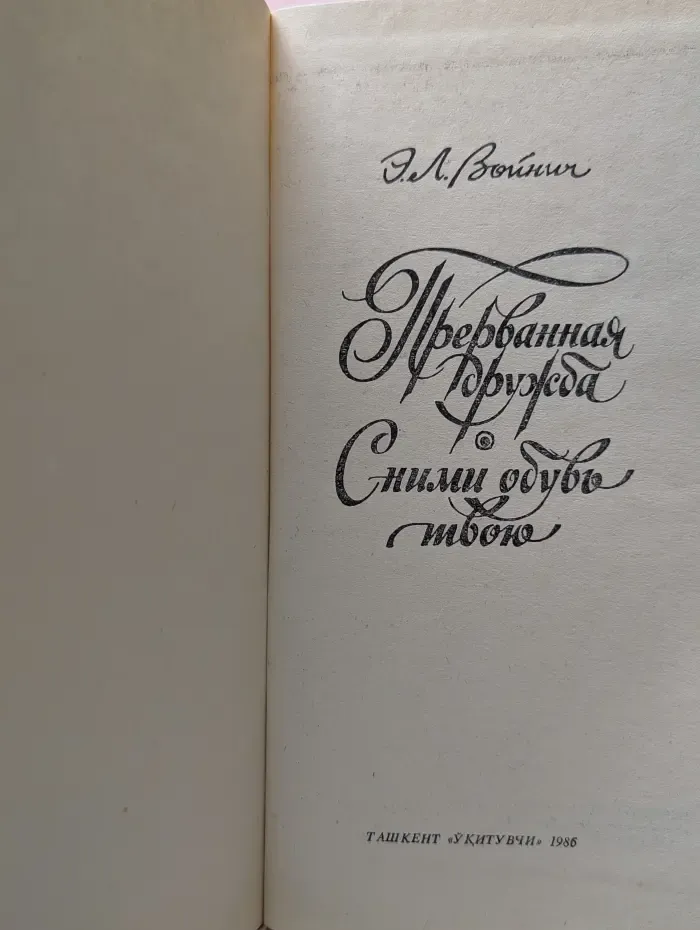 Э.Л. Войнич
Прерванная
дружба
Сними обувь
твою
ТАШКЕНТ «ЎҚИТУВЧИ» 1986